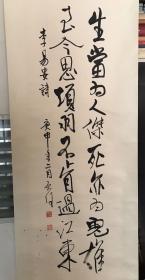 生當為人傑死亦為鬼雄
至今思項羽不肯過江東
李易安詩 庚申年二月